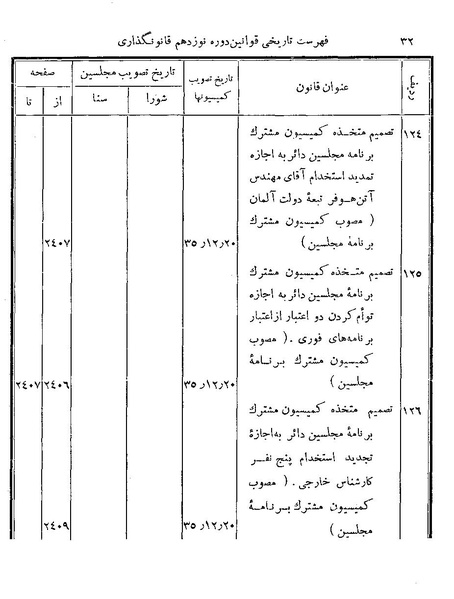 ۳۲
فهرست تاریخی قوانین دوره نوزدهم قانونگذاری
ردیف
عنوان قانون
تاریخ تصویب کمیسیونها
تاریخ تصویب مجلسین
شورا
سنا
صفحه
از
تا
۱۲۴
تصمیم متخذه کمیسیون مشترك
برنامه مجلسین دائر به اجازه
تمدید استخدام آقای مهندس
آتن‌هوفر تبعهٔ دولت آلمان
( مصوب کمیسیون مشترك
برنامهٔ مجلسین )
۳۵٫۱۲٫۲۰
۲٤۰۷
۱۲۵
تصمیم متخذه کمیسیون مشترك
برنامهٔ مجلسین دائر به اجازه
توأم کردن دو اعتبار از اعتبار
برنامه‌های فوری . ( مصوب
کمیسیون مشترك برنامهٔ
مجلسین )
۳۵٫۱۲٫۲۰
۲٤۰۶
۲٤۰۷
۱۲۶
تصمیم متخذه کمیسیون مشترك
برنامهٔ مجلسین دائر به اجازهٔ
تجدید استخدام پنج نفر
کارشناس خارجی . ( مصوب
کمیسیون مشترك برنامهٔ
مجلسین )
۳۵٫۱۲٫۲۰
۲٤۰۹